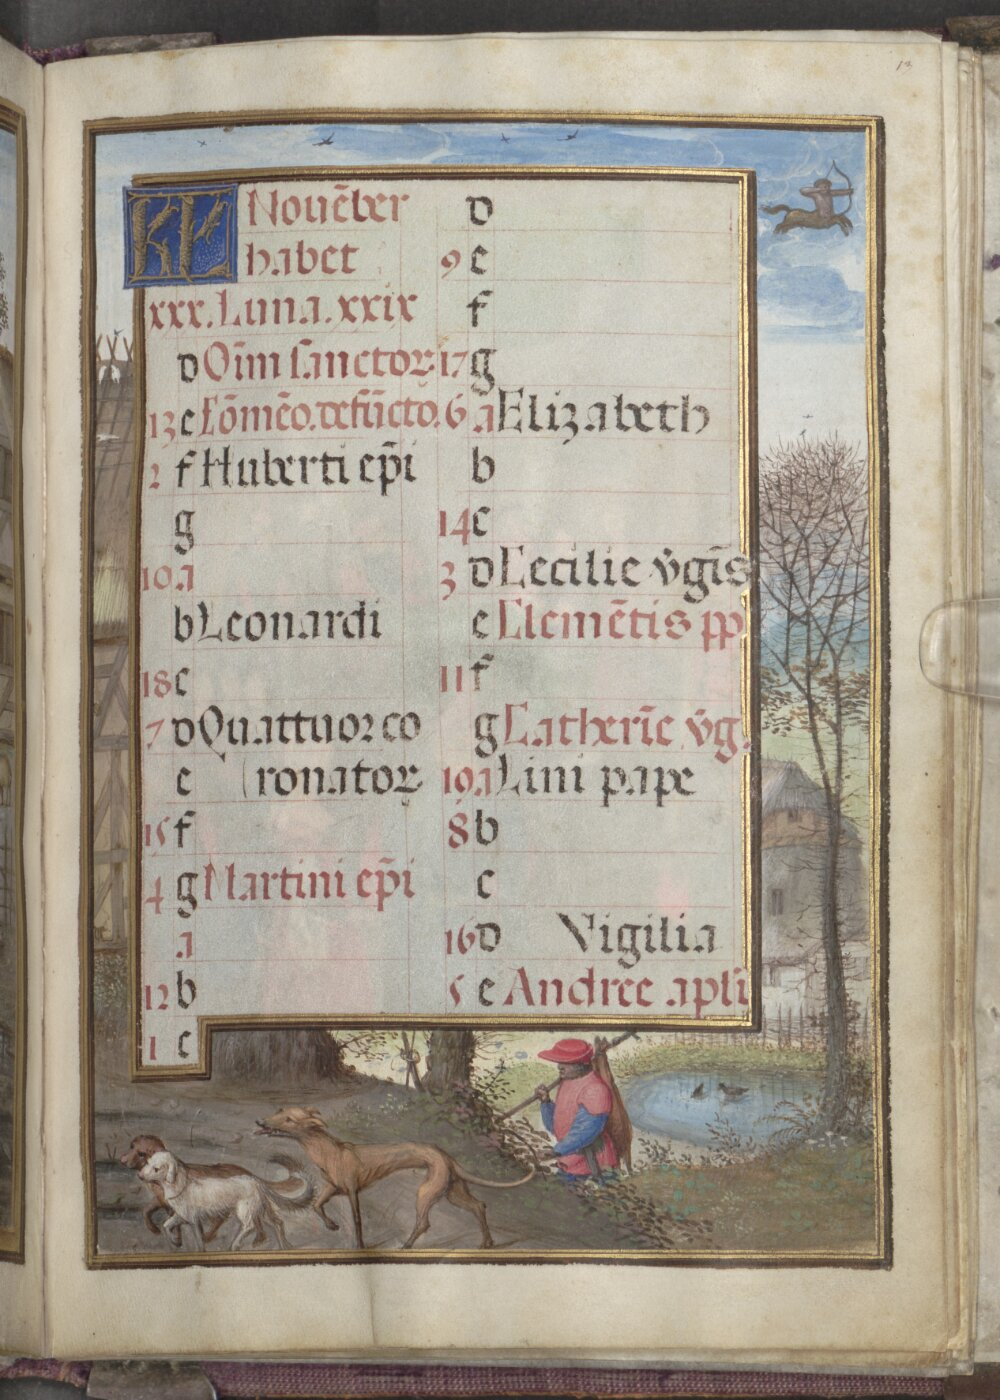 13
KL Nouēber
habet
xxx. Luna. xxix
d Oīm sanctoꝝ
13 e Cōmēo. defūcto.
2 f Huberti ep̄i
g
10 a
b Leonardi
18 c
7 d Quattuor co
e (ronatoꝝ
15 f
4 g Martini ep̄i
a
12 b
1 c
d
9 e
f
17 g
6 a Elizabeth
b
14 c
3 d Cecilie v̄gīs
e Clemētis pp
11 f
g Catherīe v̄g.
19 a Lini pape
8 b
c
16 d Vigilia
5 e Andree apl̄i